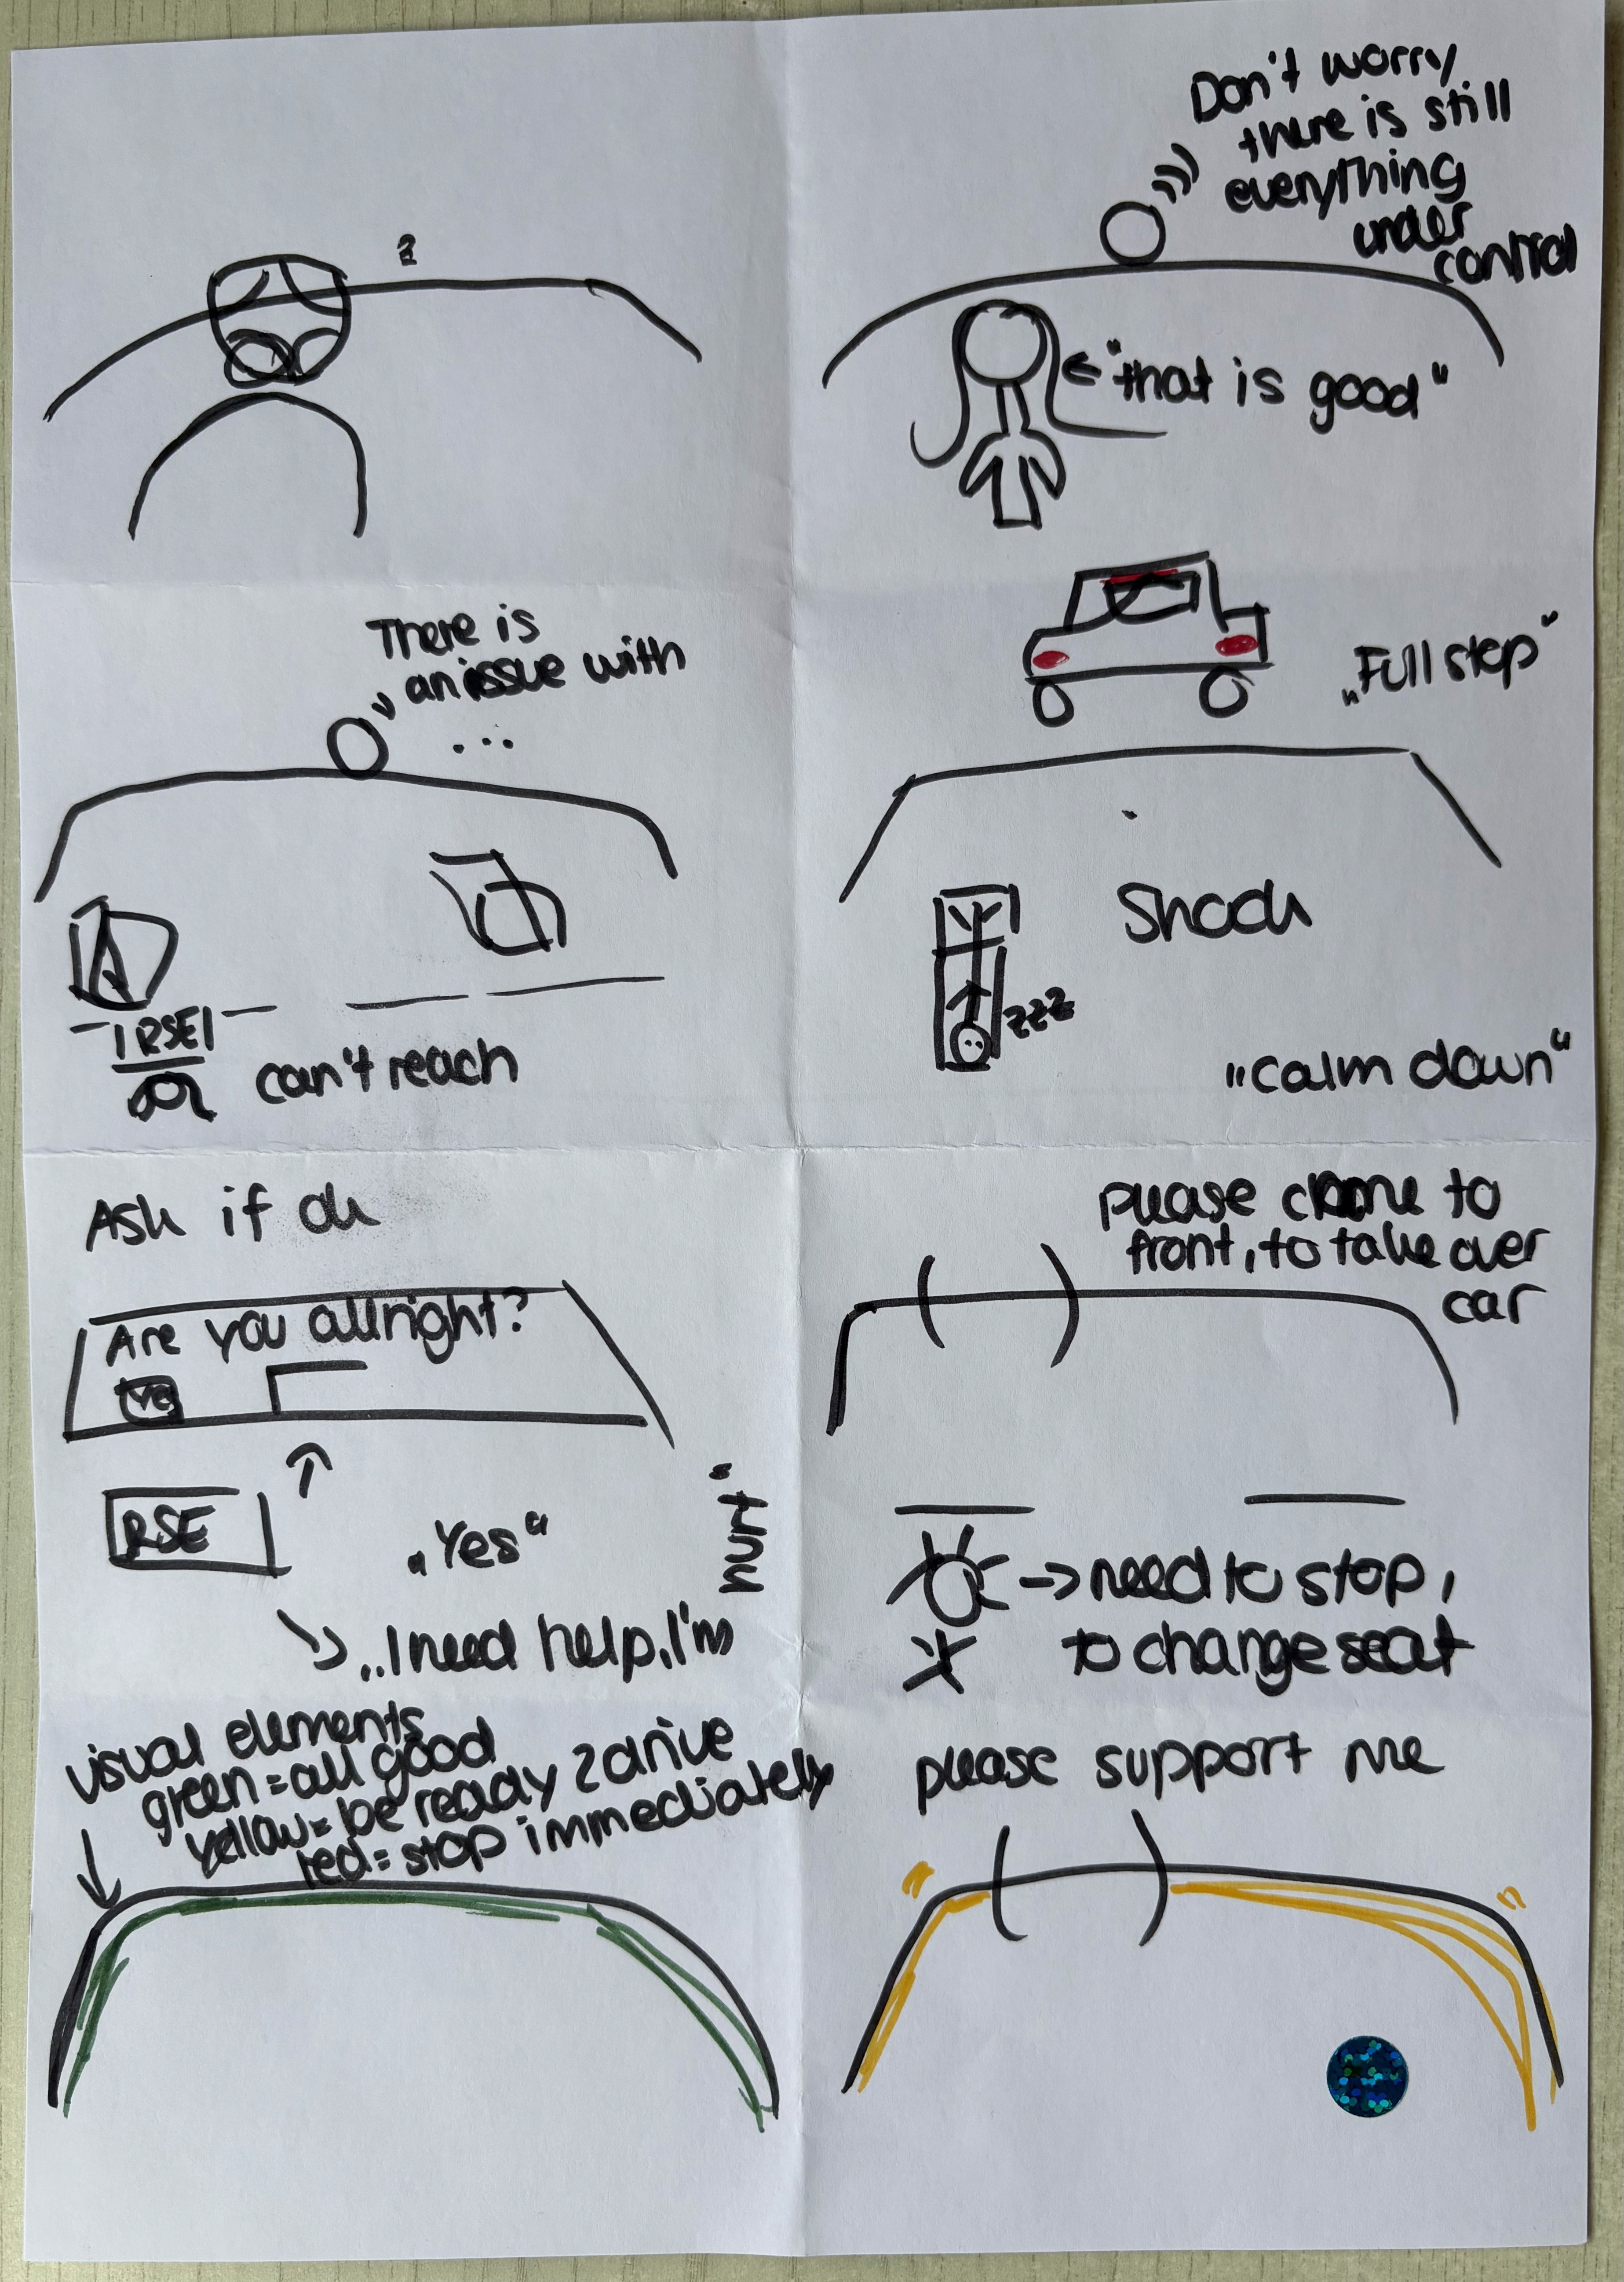 ?
Don't worry
there is still
everything
under
control
"that is good"
There is
an issue with
...
RSE
can't reach
„Full stop"
Shock
zzz
„calm down"
Ask if ok
Are you allright?
Yes
RSE
„Yes"
„I need help, I'm
hurt"
please come to
front, to take over
car
-> need to stop,
to change seat
visual elements
green = all good
yellow = be ready 2 drive
red = stop immediately
please support me